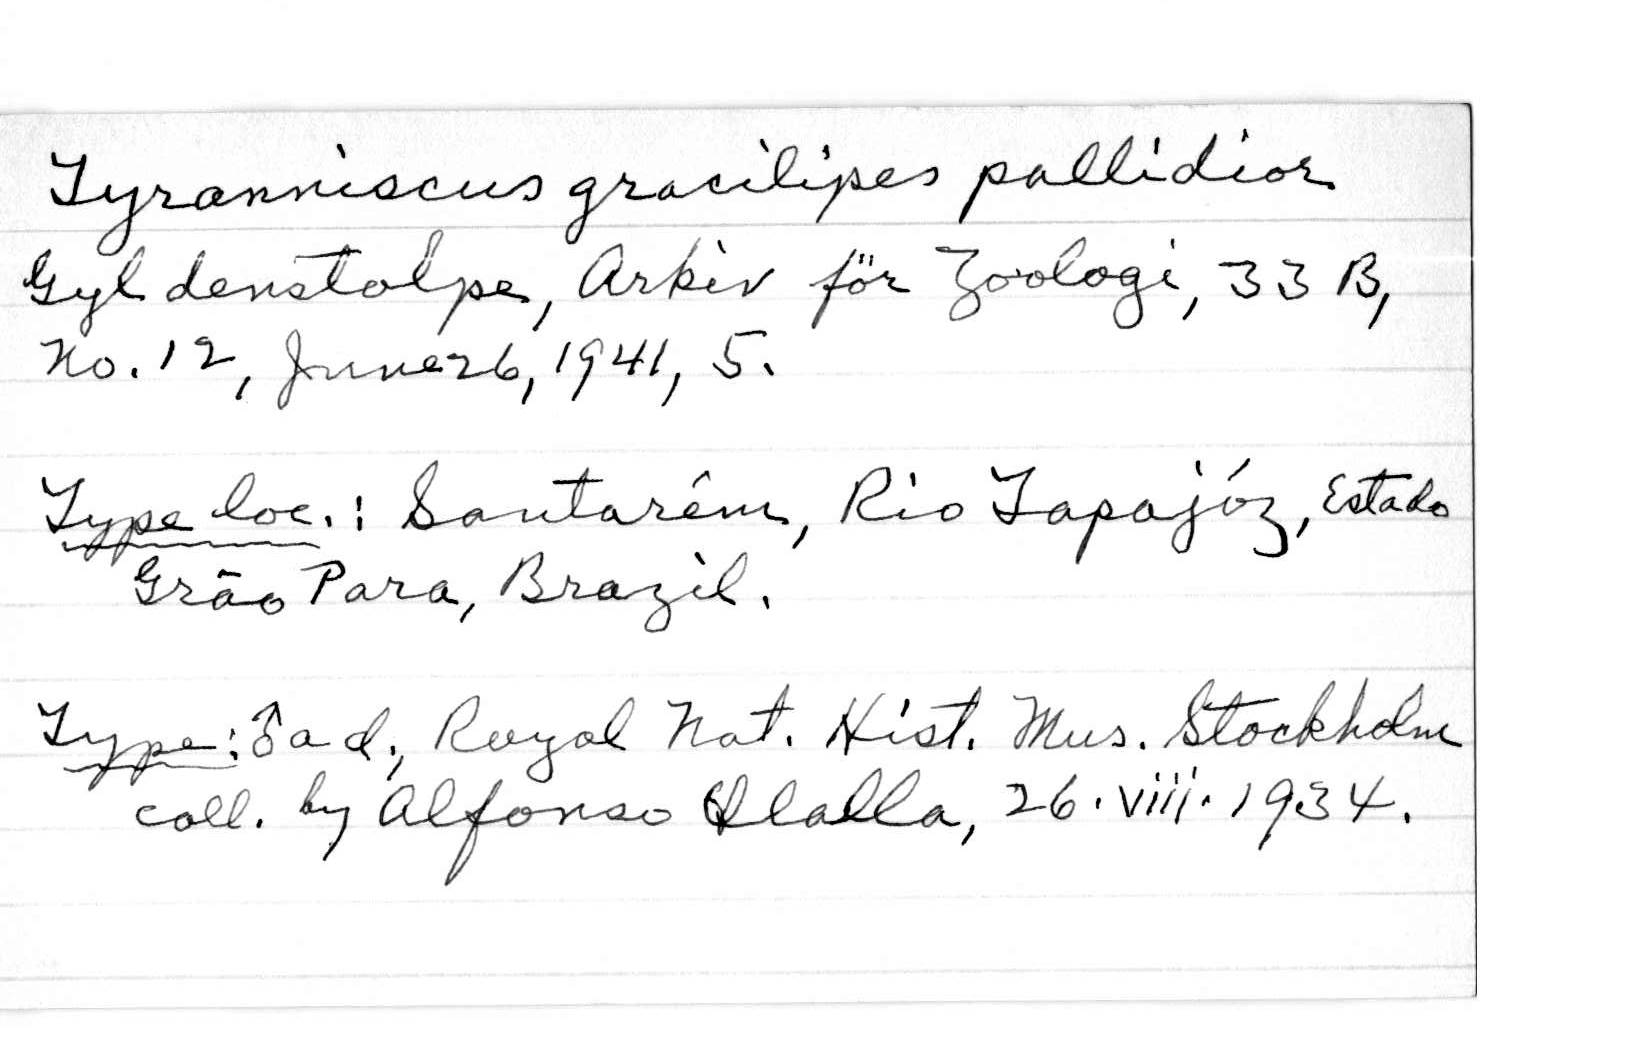 Tyranniscus gracilipes pallidior
Gyldenstolpe, Arkiv för Zoologi, 33 B,
No. 12, June 26, 1941, 5.
Type loc.: Santarém, Rio Tapajóz, Estado
Grão Para, Brazil.
Type: ♂ ad, Royal Nat. Hist. Mus. Stockholm
coll. by Alfonso Olalla, 26. viii. 1934.